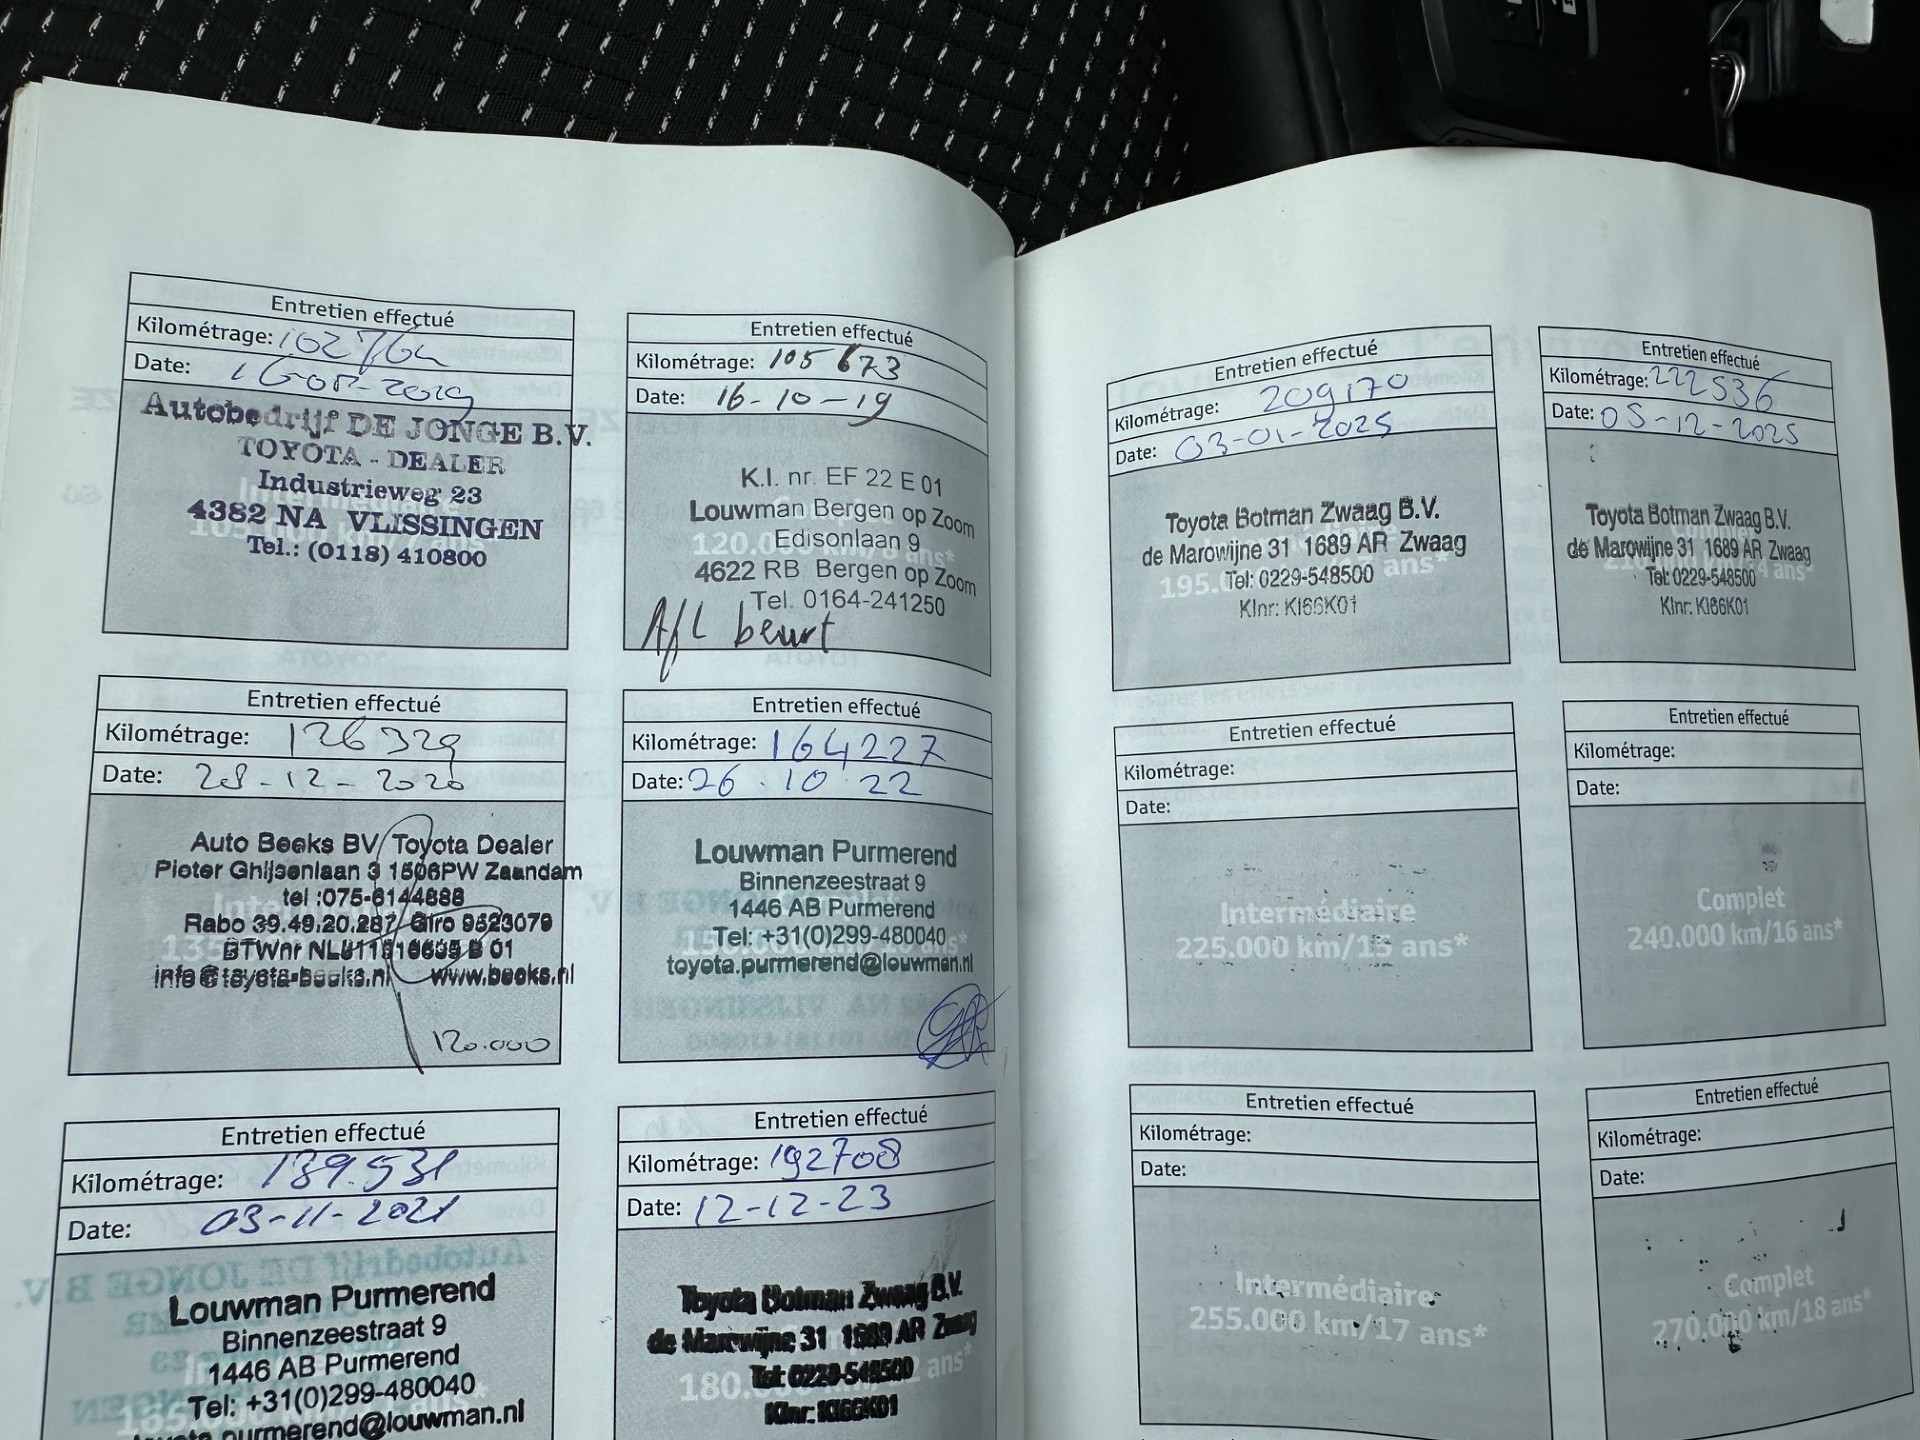 Entretien effectué
Kilométrage: 102764
Date: 16-08-2019
Autobedrijf DE JONGE B.V.
TOYOTA - DEALER
Industrieweg 23
4382 NA VLISSINGEN
Tel.: (0118) 410800
Entretien effectué
Kilométrage: 105 673
Date: 16-10-19
K.I. nr. EF 22 E 01
Louwman Bergen op Zoom
Edisonlaan 9
120.000 km/8 ans*
4622 RB Bergen op Zoom
Tel. 0164-241250
Afl beurt
Entretien effectué
Kilométrage: 126329
Date: 28-12-2020
Auto Beeks BV Toyota Dealer
Pieter Ghijsenlaan 3 1506PW Zaandam
tel :075-6144888
Rabo 39.49.20.287 Giro 9523079
BTWnr
info@toyota-beeks.nl www.beeks.nl
120.000
Entretien effectué
Kilométrage: 164227
Date: 26.10.22
Louwman Purmerend
Binnenzeestraat 9
1446 AB Purmerend
Tel: +31(0)299-480040
toyota.purmerend@louwman.nl
Entretien effectué
Kilométrage: 139.531
Date: 03-11-2021
Louwman Purmerend
Binnenzeestraat 9
1446 AB Purmerend
Tel: +31(0)299-480040
toyota.purmerend@louwman.nl
Entretien effectué
Kilométrage: 192708
Date: 12-12-23
Toyota Botman Zwaag B.V.
de Marowijne 31 1689 AR Zwaag
Tel: 0229-548500
Klnr: KI66K01
Entretien effectué
Kilométrage: 209170
Date: 03-01-2025
Toyota Botman Zwaag B.V.
de Marowijne 31 1689 AR Zwaag
Tel: 0229-548500
Klnr: KI66K01
Entretien effectué
Kilométrage: 222536
Date: 05-12-2025
Toyota Botman Zwaag B.V.
de Marowijne 31 1689 AR Zwaag
Tel: 0229-548500
Klnr: KI66K01
Entretien effectué
Kilométrage:
Date:
Intermédiaire
225.000 km/15 ans*
Entretien effectué
Kilométrage:
Date:
Complet
240.000 km/16 ans*
Entretien effectué
Kilométrage:
Date:
Intermédiaire
255.000 km/17 ans*
Entretien effectué
Kilométrage:
Date:
Complet
270.000 km/18 ans*